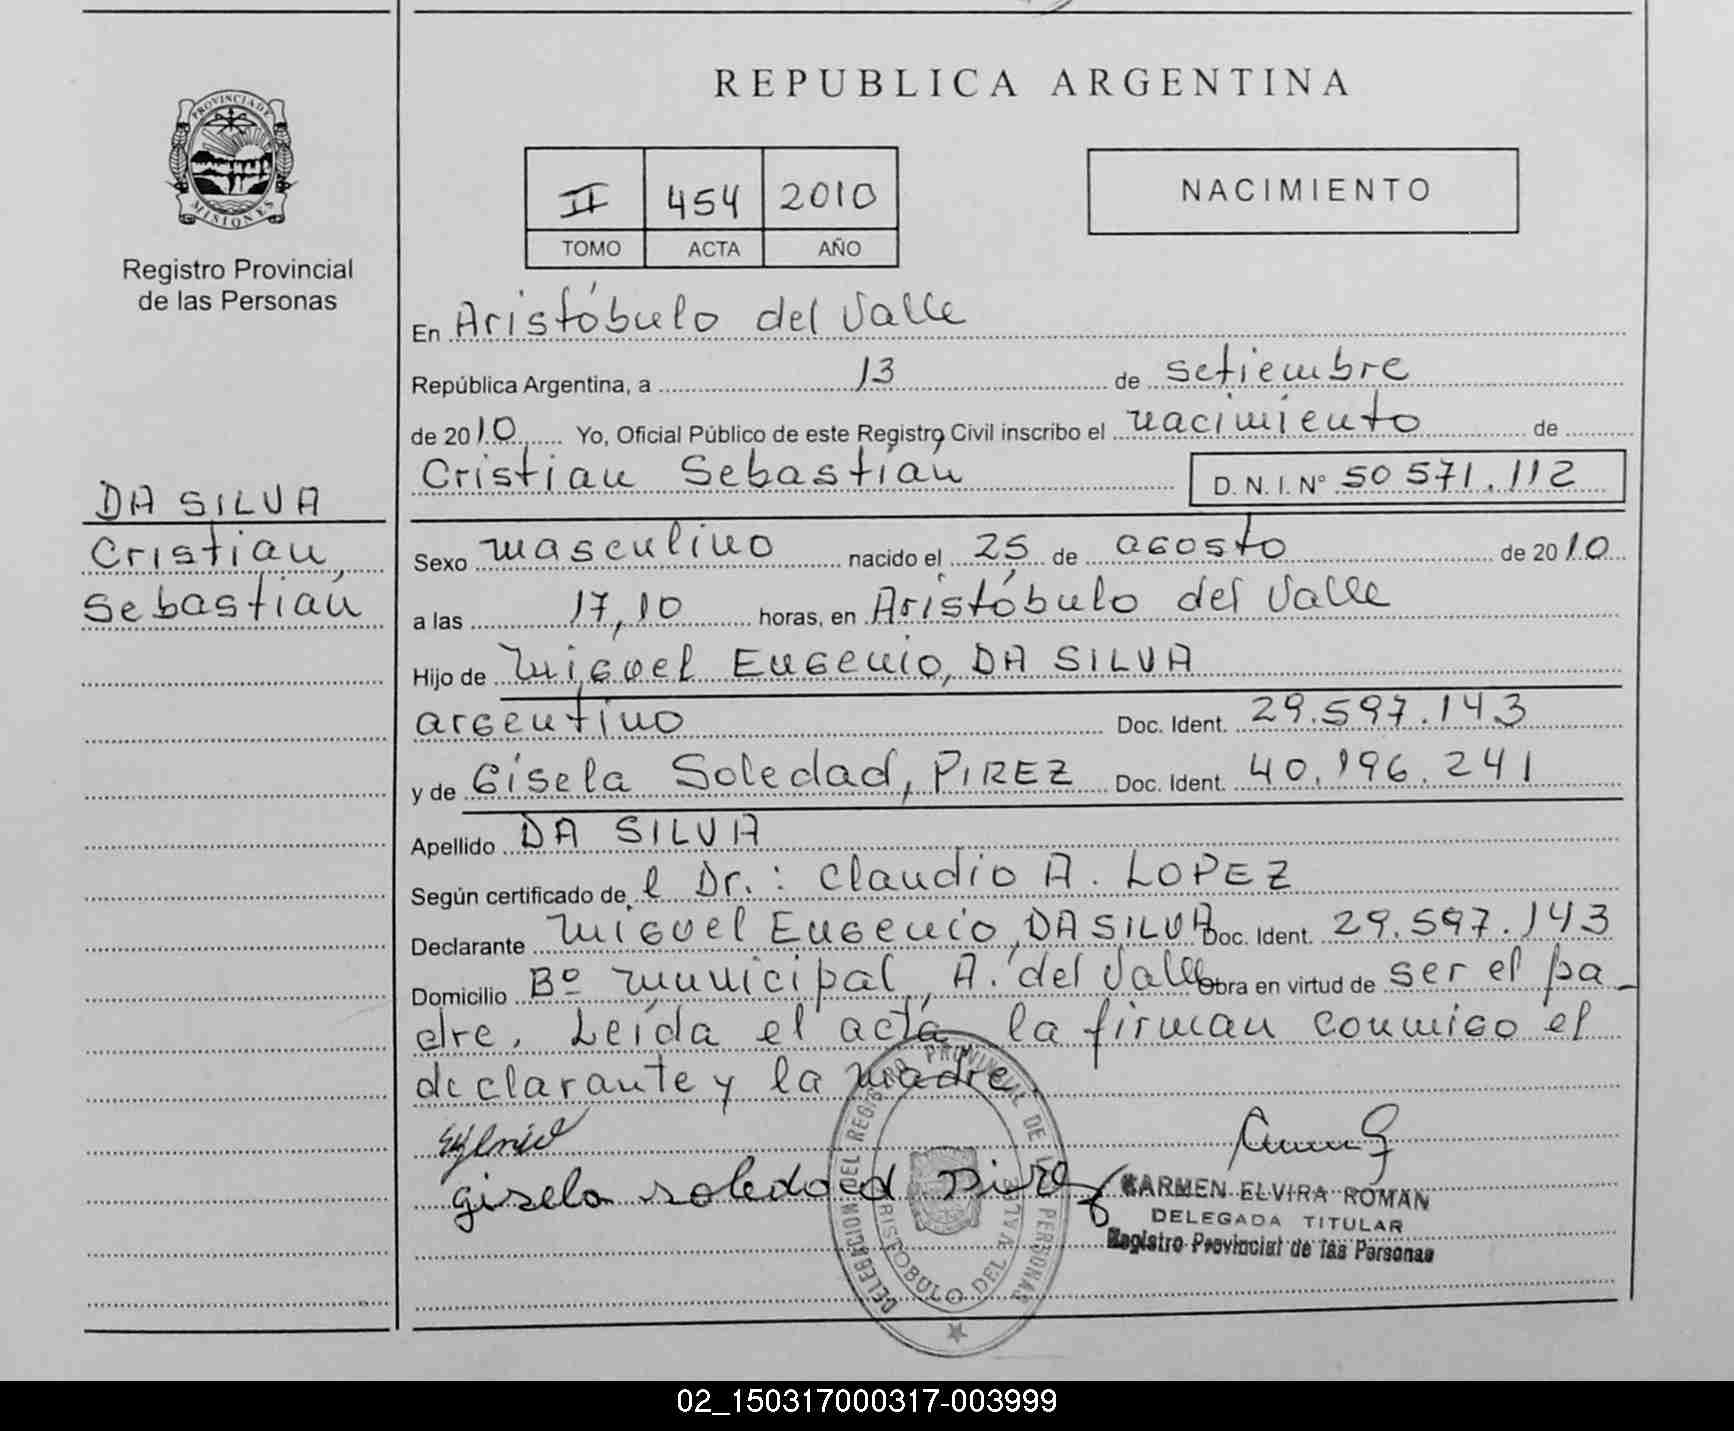 REPUBLICA ARGENTINA
PROVINCIA DE
MISIONES
Registro Provincial
de las Personas
II 454 2010
TOMO ACTA AÑO
NACIMIENTO
DA SILVA
Cristian,
Sebastián
En Aristóbulo del Valle
República Argentina, a 13 de setiembre
de 2010 Yo, Oficial Público de este Registro Civil inscribo el nacimiento de
Cristian Sebastián D. N. I. N° 50 571.112
Sexo masculino nacido el 25 de agosto de 2010
a las 17,10 horas, en Aristóbulo del Valle
Hijo de Miguel Eugenio, DA SILVA
argentino Doc. Ident. 29.597.143
y de Gisela Soledad, PIREZ Doc. Ident. 40.196.241
Apellido DA SILVA
Según certificado de l Dr.: Claudio A. LOPEZ
Declarante Miguel Eugenio, DA SILVA Doc. Ident. 29.597.143
Domicilio Bº municipal, A. del Valle Obra en virtud de ser el pa_
dre. Leída el acta, la firman conmigo el
declarante y la madre.
gisela soledad Pirez
DELEGACION DEL REGISTRO PROVINCIAL DE LAS PERSONAS
ARISTOBULO DEL VALLE
CARMEN ELVIRA ROMAN
DELEGADA TITULAR
Registro Provincial de las Personas
02_150317000317-003999